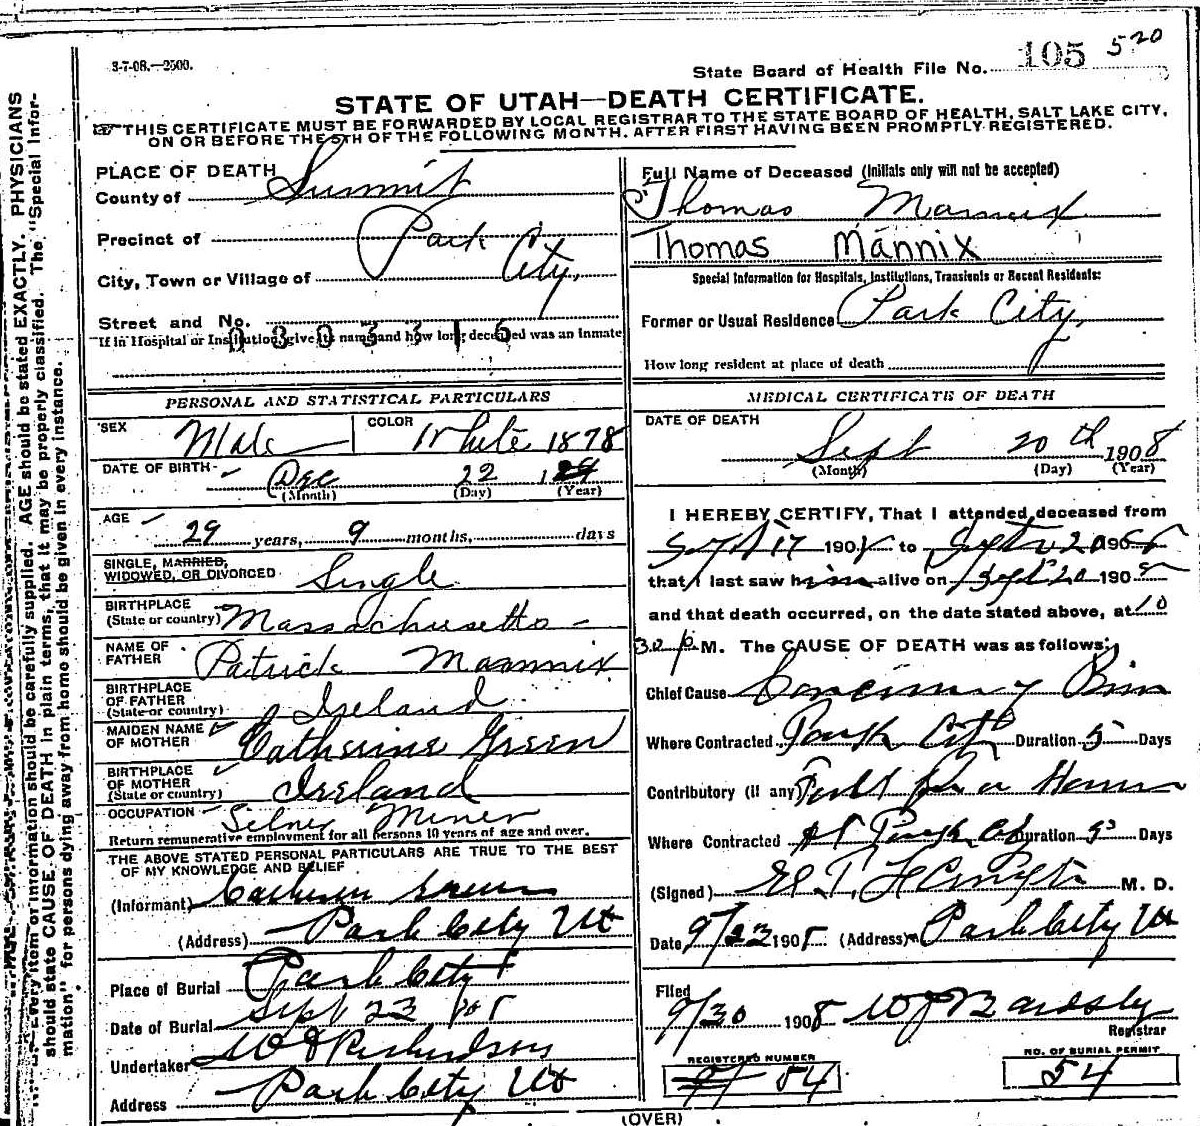 3-7-08.—2500.
State Board of Health File No. 105 520
STATE OF UTAH—DEATH CERTIFICATE.
THIS CERTIFICATE MUST BE FORWARDED BY LOCAL REGISTRAR TO THE STATE BOARD OF HEALTH, SALT LAKE CITY,
ON OR BEFORE THE 5TH OF THE FOLLOWING MONTH, AFTER FIRST HAVING BEEN PROMPTLY REGISTERED.
Every item of information should be carefully supplied. AGE should be stated EXACTLY. PHYSICIANS
should state CAUSE OF DEATH in plain terms, that it may be properly classified. The "Special Infor-
mation" for persons dying away from home should be given in every instance.
PLACE OF DEATH
County of Summit
Precinct of Park
City, Town or Village of City,
Street and No.
If in Hospital or Institution, give its name and how long deceased was an inmate
0 3 0 3 3 1 6
PERSONAL AND STATISTICAL PARTICULARS
SEX Male
COLOR White 1878
DATE OF BIRTH Dec 22 1
(Month) (Day) (Year)
AGE 29 years, 9 months, days
SINGLE, MARRIED,
WIDOWED, OR DIVORCED Single
BIRTHPLACE
(State or country) Massachusetts
NAME OF
FATHER Patrick Mannix
BIRTHPLACE
OF FATHER
(State or country) Ireland
MAIDEN NAME
OF MOTHER Catherine Green
BIRTHPLACE
OF MOTHER
(State or country) Ireland
OCCUPATION Miner
Return remunerative employment for all persons 10 years of age and over.
THE ABOVE STATED PERSONAL PARTICULARS ARE TRUE TO THE BEST
OF MY KNOWLEDGE AND BELIEF
(Informant)
(Address) Park City Ut
Place of Burial Park City
Date of Burial Sept 23 1908
Undertaker Richardson
Address Park City Ut
Full Name of Deceased (Initials only will not be accepted)
Thomas Mannix
Thomas Mannix
Special Information for Hospitals, Institutions, Transients or Recent Residents:
Former or Usual Residence Park City,
How long resident at place of death
MEDICAL CERTIFICATE OF DEATH
DATE OF DEATH
Sept 20th 1908
(Month) (Day) (Year)
I HEREBY CERTIFY, That I attended deceased from
Sept 17 1908 to Sept 20 1908
that I last saw him alive on Sept 20 1908
and that death occurred, on the date stated above, at 10
30 p M. The CAUSE OF DEATH was as follows:
Chief Cause
Where Contracted Park City Duration 5 Days
Contributory (if any)
Where Contracted At Park City Duration 5 Days
(Signed) M. D.
Date 9/23 1908 (Address) Park City Ut
Filed
9/30 1908 W J Bardsley
Registrar
REGISTERED NUMBER
54
NO. OF BURIAL PERMIT
54
(OVER)